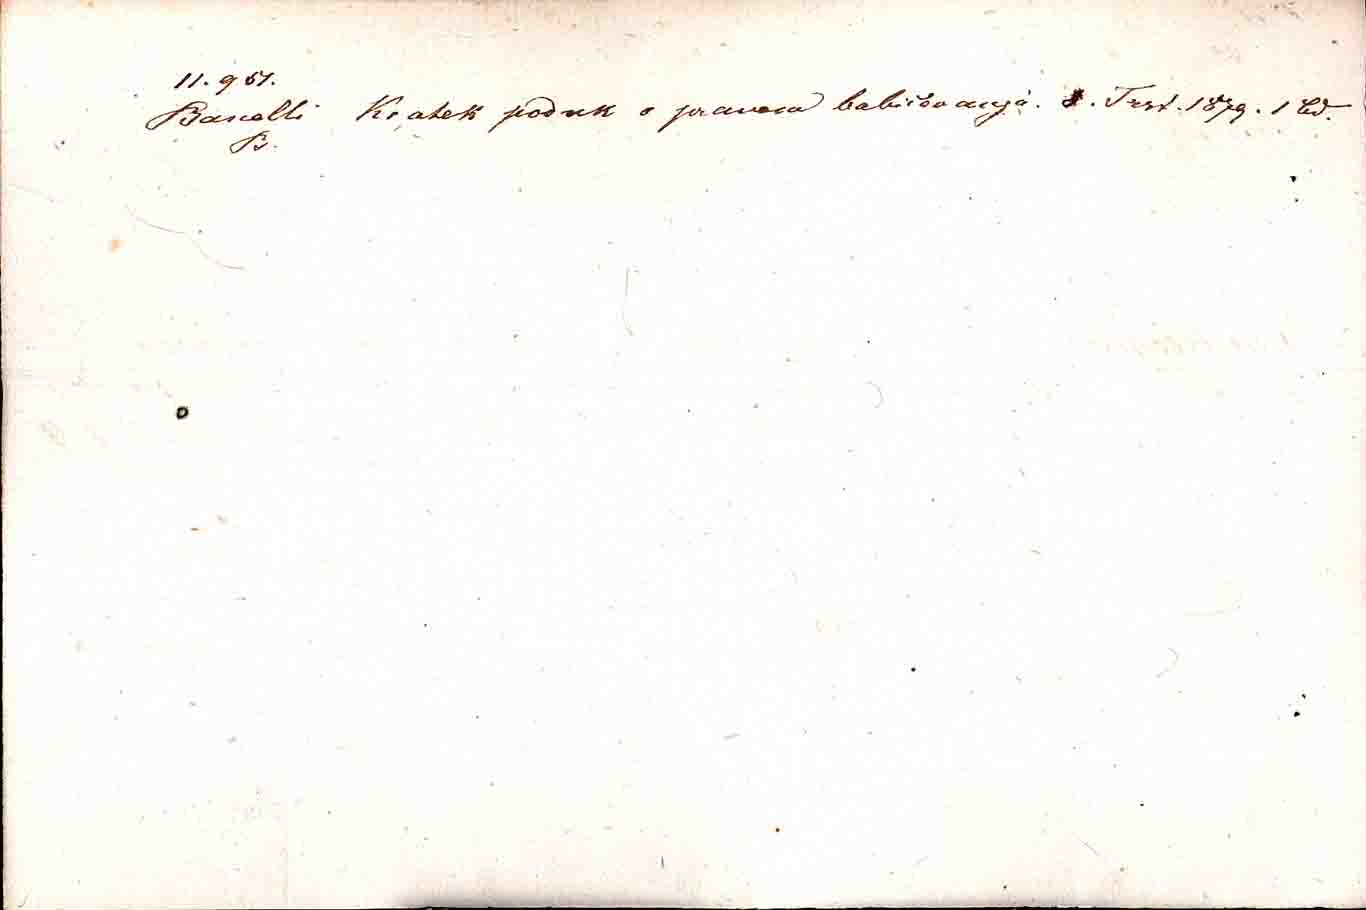 11.951.
Baselli Kratek poduk o pravem babičovanji. Trst. 1879. 1 Bd.
B.